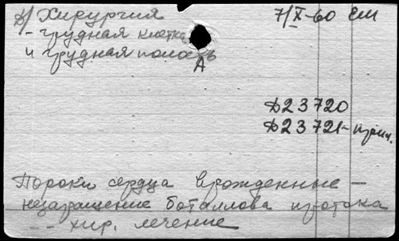 д/ Хирургия 7/X-60 ЕШ
- грудная клетка
и грудная полость
А
Д23720
Д23721-прич.
Пороки сердца врожденные -
незаращение боталлова протока
-- хир. лечение